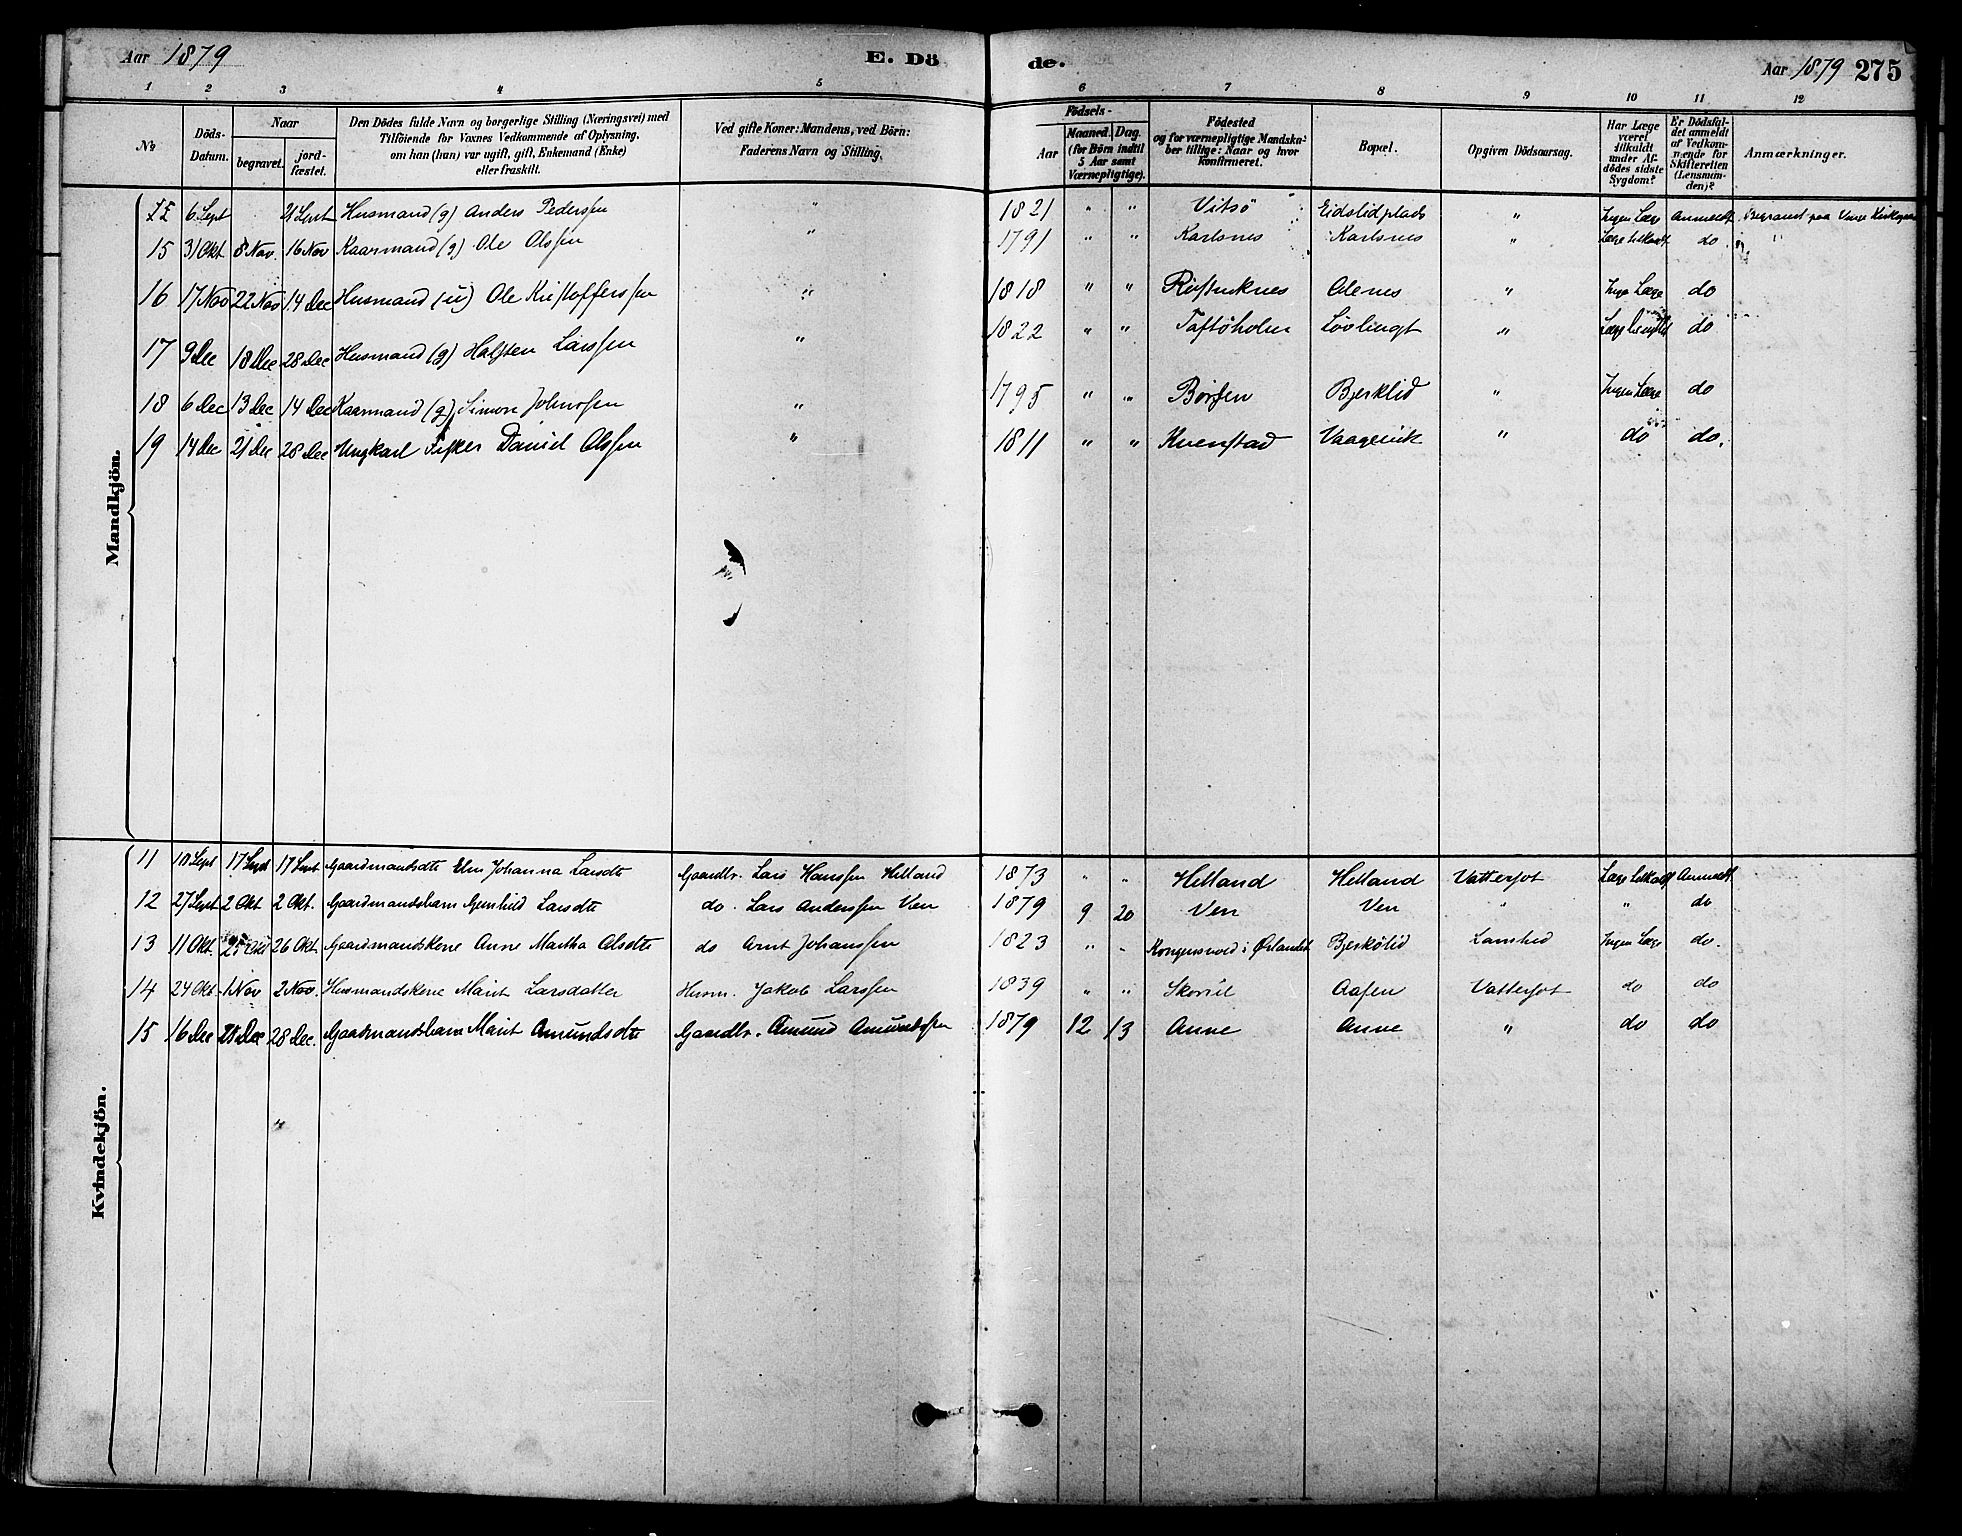 Aar 1879 E. Dö de. Aar 1879 275
1 2 3 4 5 6 7 8 9 10 11 12
No
Döds-Datum.
Naar
begravet.
jordfæstet.
Den Dödes fulde Navn og borgerlige Stilling (Næringsvei) med
Tilföiende for Voxnes Vedkommende af Oplysning,
om han (hun) var ugift, gift, Enkemand (Enke)
eller fraskilt.
Ved gifte Koner: Mandens, ved Börn:
Faderens Navn og Stilling.
Födsels-
Aar
Maaned. Dag.
(for Börn indtil
5 Aar samt
Værnepligtige).
Födested
og for værnepligtige Mandskaber tillige: Naar og hvor
konfirmeret.
Bopæl.
Opgiven Dödsaarsag.
Har Læge
været
tilkaldt
under Afdödes sidste
Sygdom?
Er Dödsfaldet anmeldt
af Vedkommende for
Skifteretten
(Lensmanden)?
Anmærkninger.
Mandkjön.
6 Sept 21 Sept Husmand (g) Anders Pederssen " 1821 " " Vitsö Eidslidplads " Ingen Læge Anmeldt Begravet paa Kirkegaard
15 31 Okt 8 Nov 16 Nov Kaarmand (g) Ole Olssen " 1791 " " Karlsnes Karlsnes " Læge tilkaldt do "
16 17 Nov 22 Nov 14 Dec Husmand (u) Ole Kristofferssen " 1818 " " Olenes " Ingen Læge do
17 9 Dec 18 Dec 28 Dec Husmand (g) Halsten Larssen " 1822 " " Taftöholm Løvlingt Læge do
18 6 Dec 13 Dec 14 Dec Kaarmand (g) Simon Johnssen " 1795 " " Børsen Bjerklid " Ingen Læge do
19 14 Dec 21 Dec 28 Dec Ungkarl Fisker Daniel Olssen " 1811 " " Kvenstad Vaagevik " do do.
Kvindekjön.
11 10 Sept 17 Sept 17 Sept Gaardmandsdtr Elen Johanna Larsdtr Gaardbr. Lars Hanssen Hilland 1873 " " Hilland Hilland Vattersot Læge tilkaldt Anmeldt
12 27 Sept 2 Okt 2 Okt. Gaardmandsbarn Gunhild Larsdtr do. Lars Anderssen Ven 1879 9 20 Ven Ven " " do
13 11 Okt. 25 Okt 26 Okt. Gaardmandskone Anne Martha Olsdtr do Arnt Johanssen 1823 " " Kongensvold i Ørlandet Bjerkölid Ingen Læge do.
14 24 Okt. 1 Nov 2 Nov. Husmandskone Marit Larsdatter Husm. Jakob Larssen 1839 " " Aasen Vattersot do do
15 16 Dec 28 Dec 28 Dec. Gaardmandsbarn Marit Amundsdtr Gaardbr. Amund Amundssen 1879 12 13 Anve Anve " do do